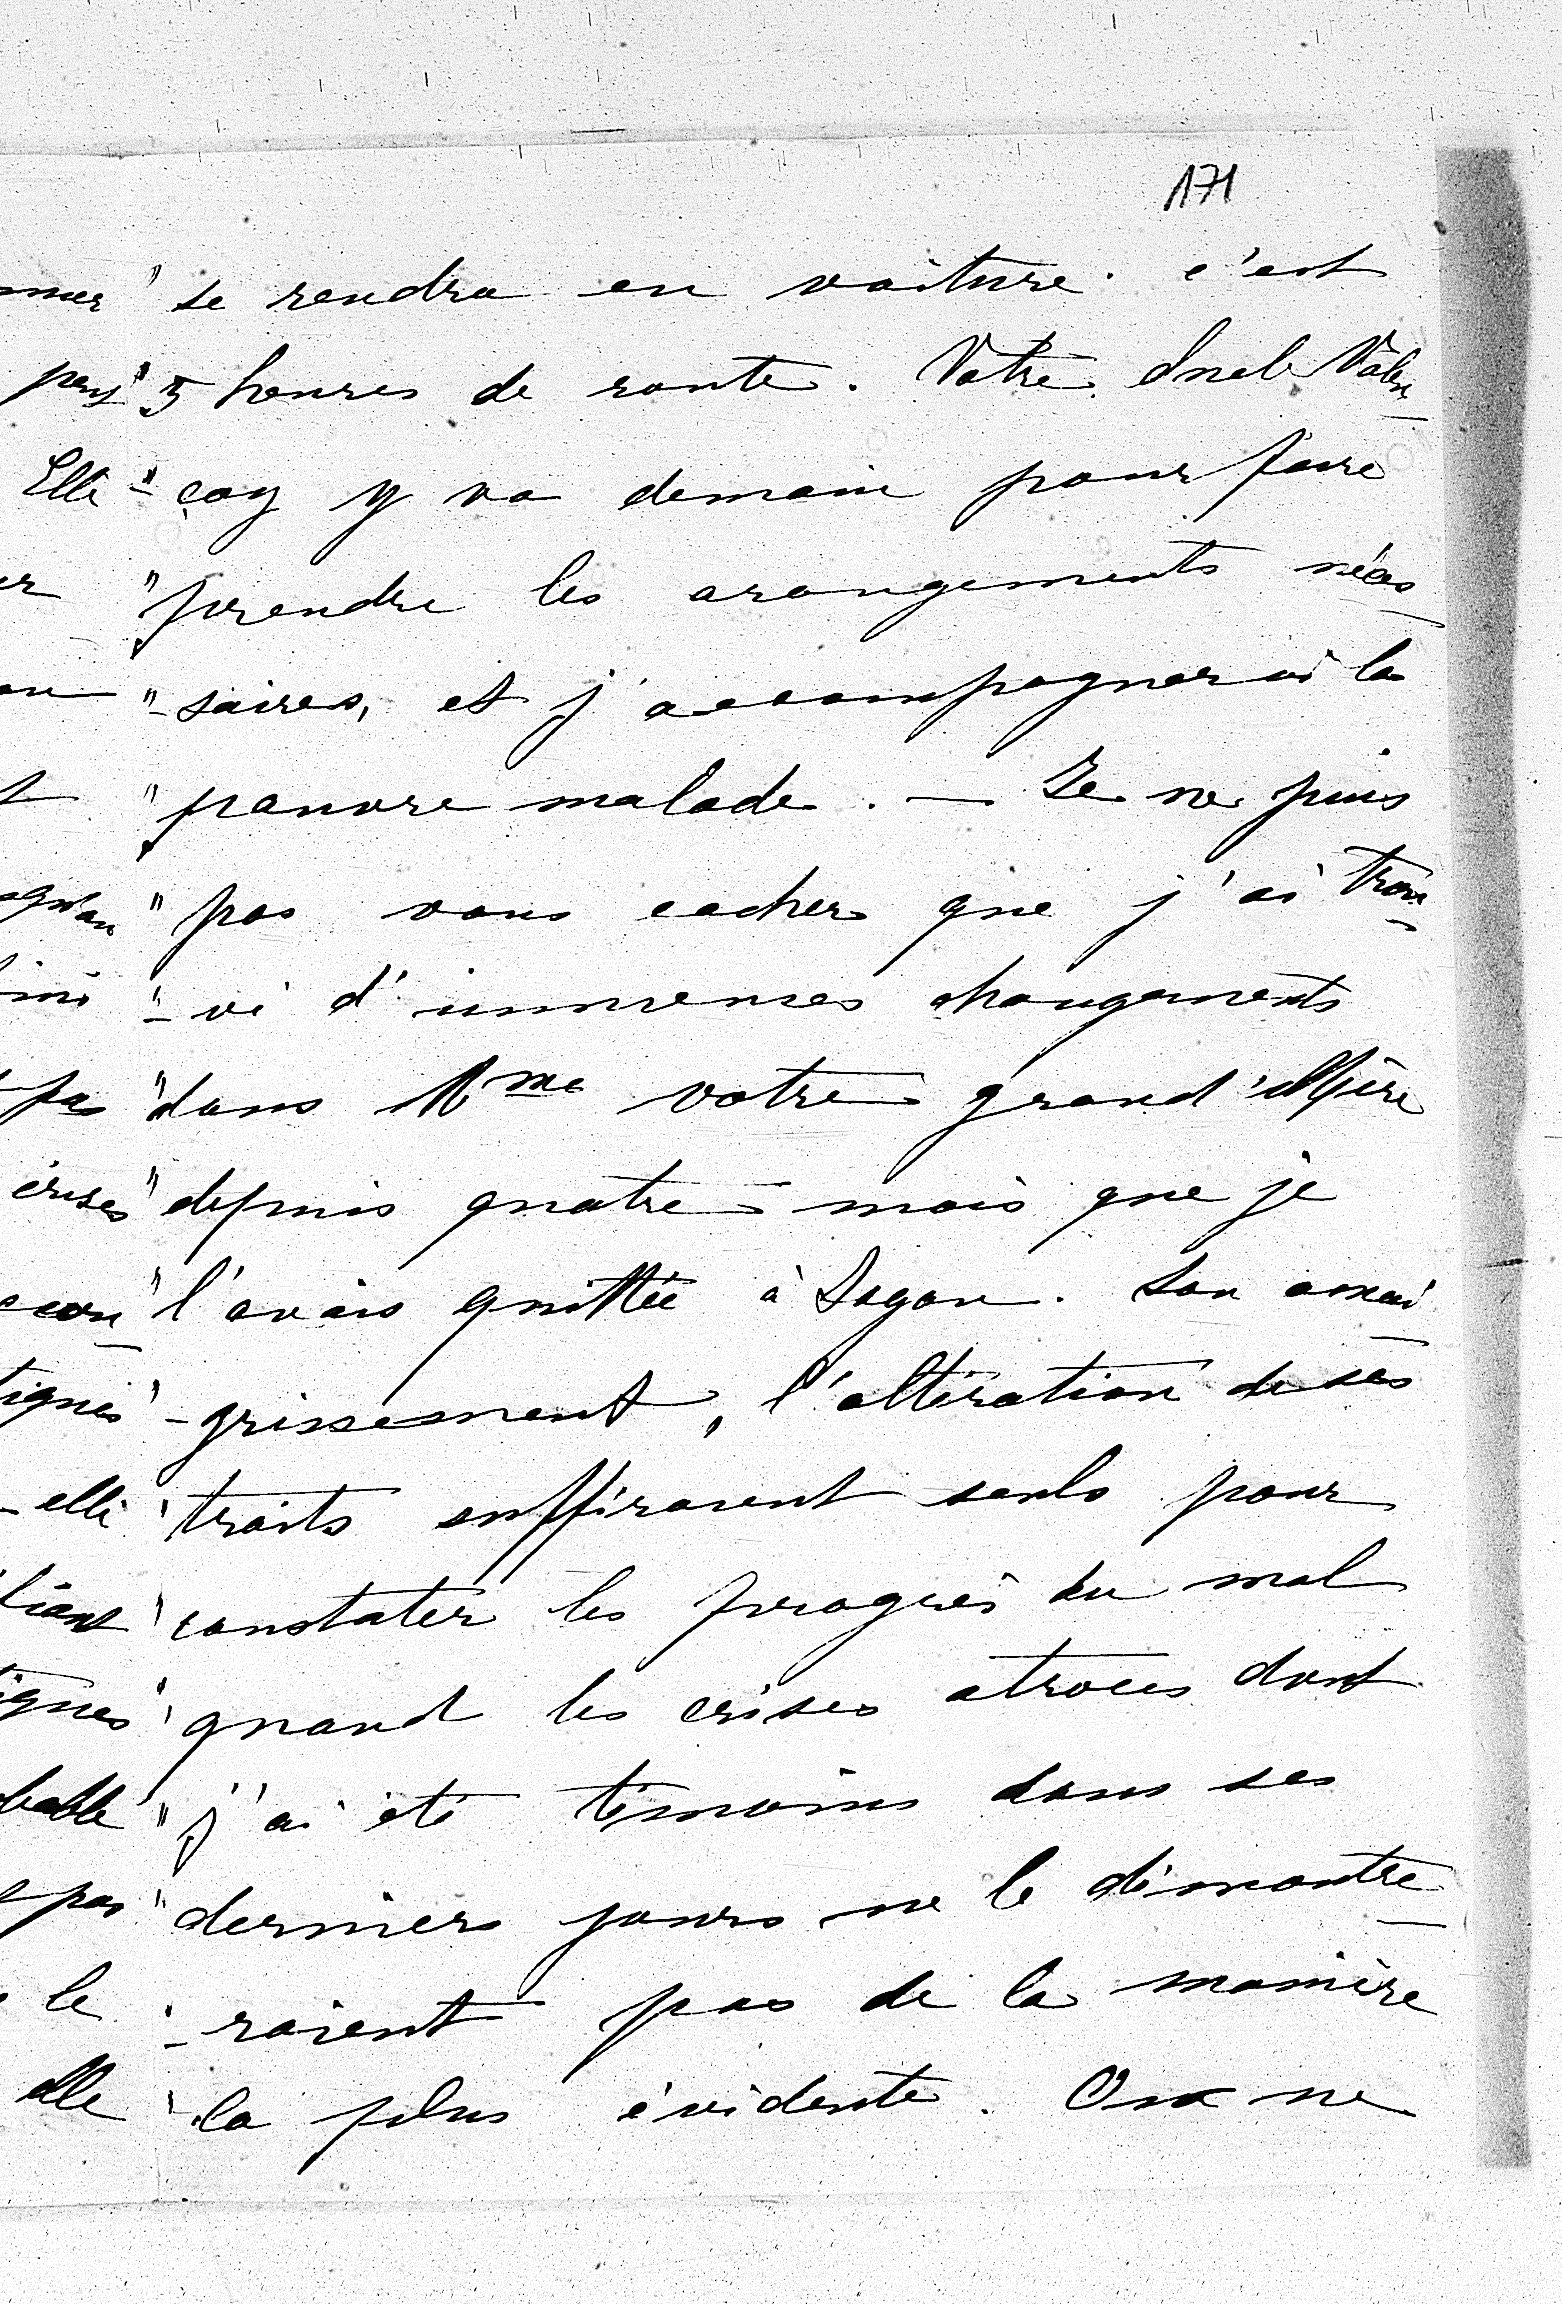 171
" se rendra en voiture. c'est
" 5 heures de route. Votre Oncle Valen
"-çay y va demain pour faire
" prendre les arangements néces
"-saires, et j'accompagnerai la
" pauvre malade. — Je ne puis
" pas vous cacher que j'ai trou
"-vé d'immenses changements
" dans Mme votre grand'Mère
" depuis quatre mois que je
" l'avais quittée à Sagan. Son amai
"-grissement, l'altération de ses
" traits suffiraient seuls pour
" constater les progrès du mal
" quand les crises atroces dont
" j'ai été témoins dans ses
" derniers jours ne le démontre
"-raient pas de la manière
" la plus évidente. On ne